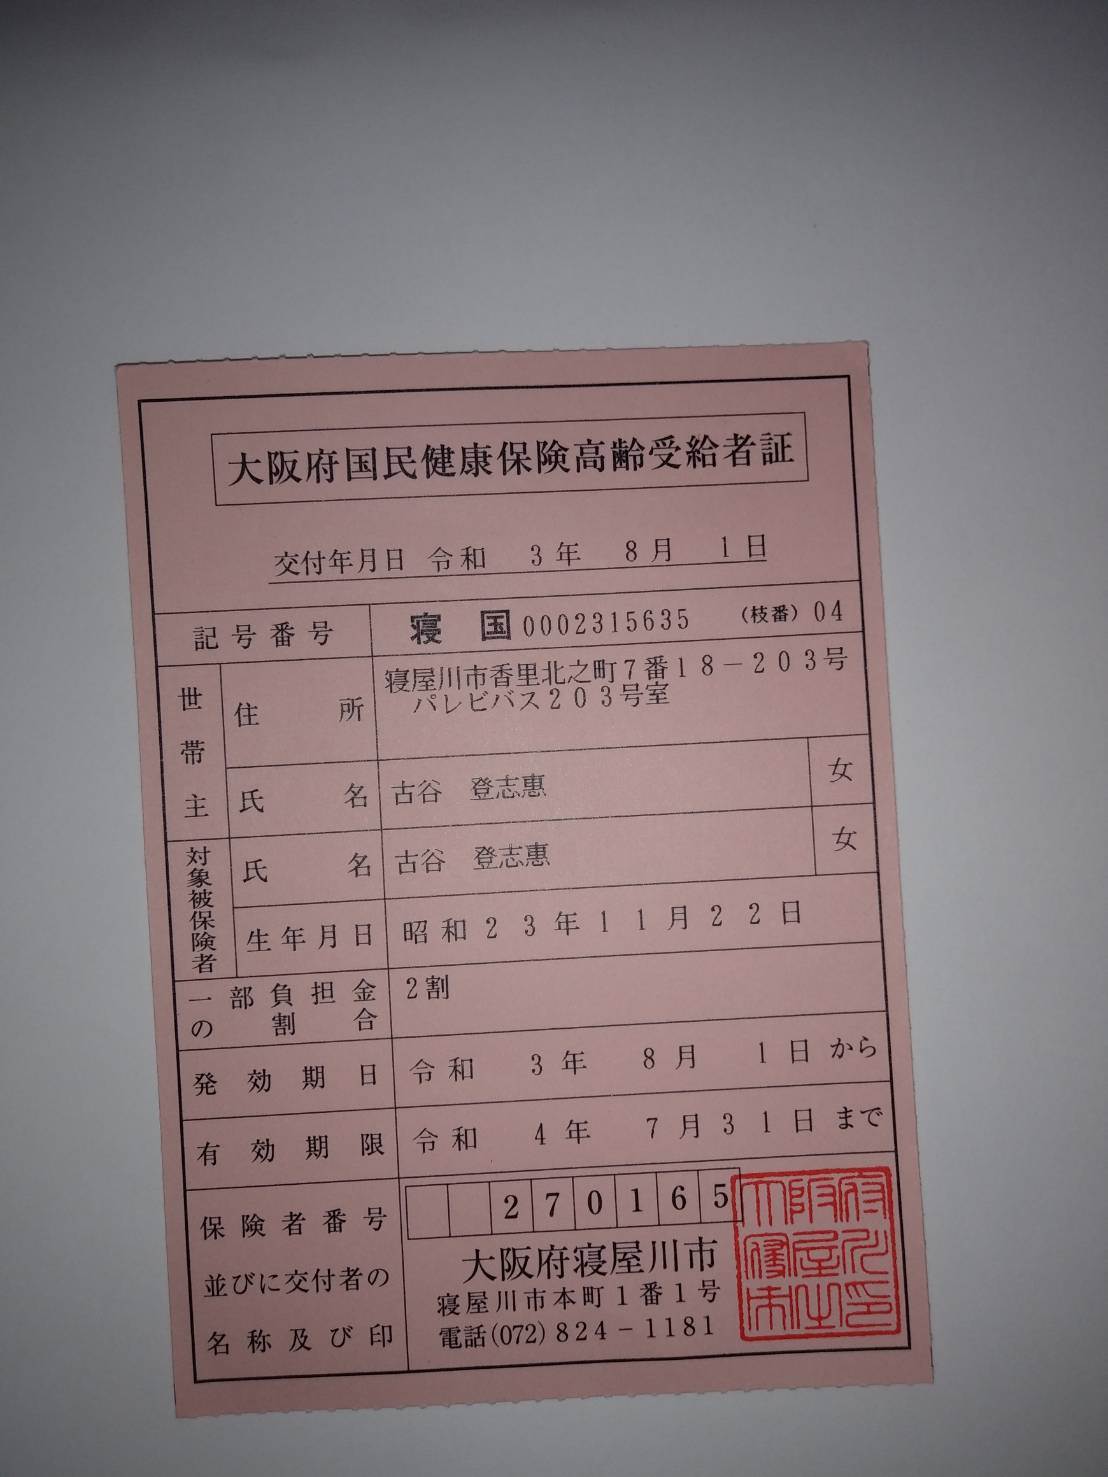 大阪府国民健康保険高齢受給者証
交付年月日 令和 3年 8月 1日
記号番号 寝 国 0002315635 (枝番) 04
世帯主
住所 寝屋川市香里北之町7番18－203号
パレビバス203号室
氏名 古谷 登志惠 女
対象被保険者
氏名 古谷 登志惠 女
生年月日 昭和23年11月22日
一部負担金の割合 2割
発効期日 令和 3年 8月 1日から
有効期限 令和 4年 7月31日まで
保険者番号並びに交付者の名称及び印 270165
大阪府寝屋川市
寝屋川市本町1番1号
電話(072)824－1181